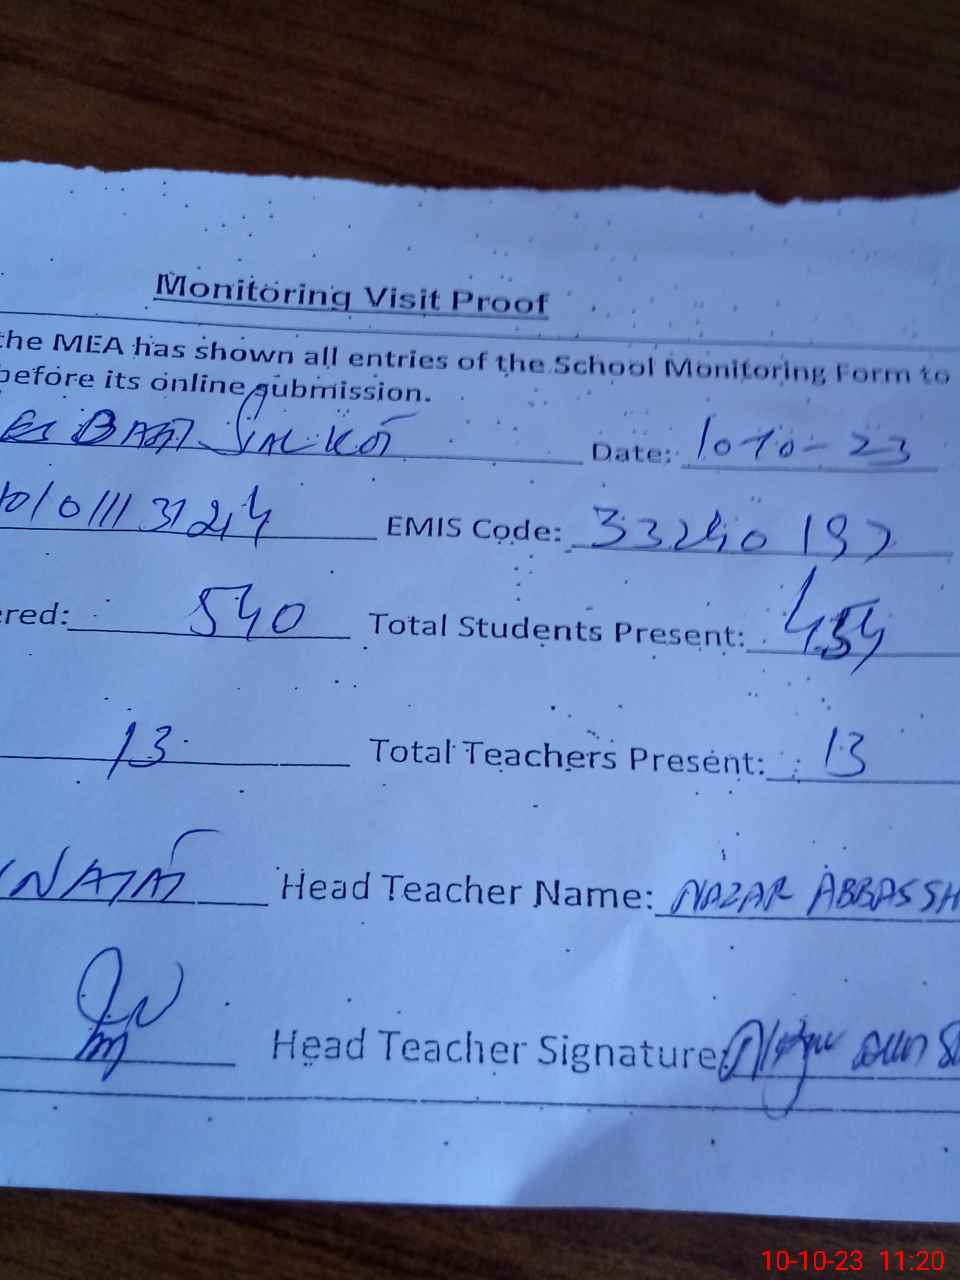 Monitoring Visit Proof
the MEA has shown all entries of the School Monitoring Form to
before its online submission.
Date: 10-10-23
EMIS Code: 33240197
ered: 540 Total Students Present: 454
13 Total Teachers Present: 13
Head Teacher Name: NAZAR ABBAS SH
Head Teacher Signature:
10-10-23 11:20